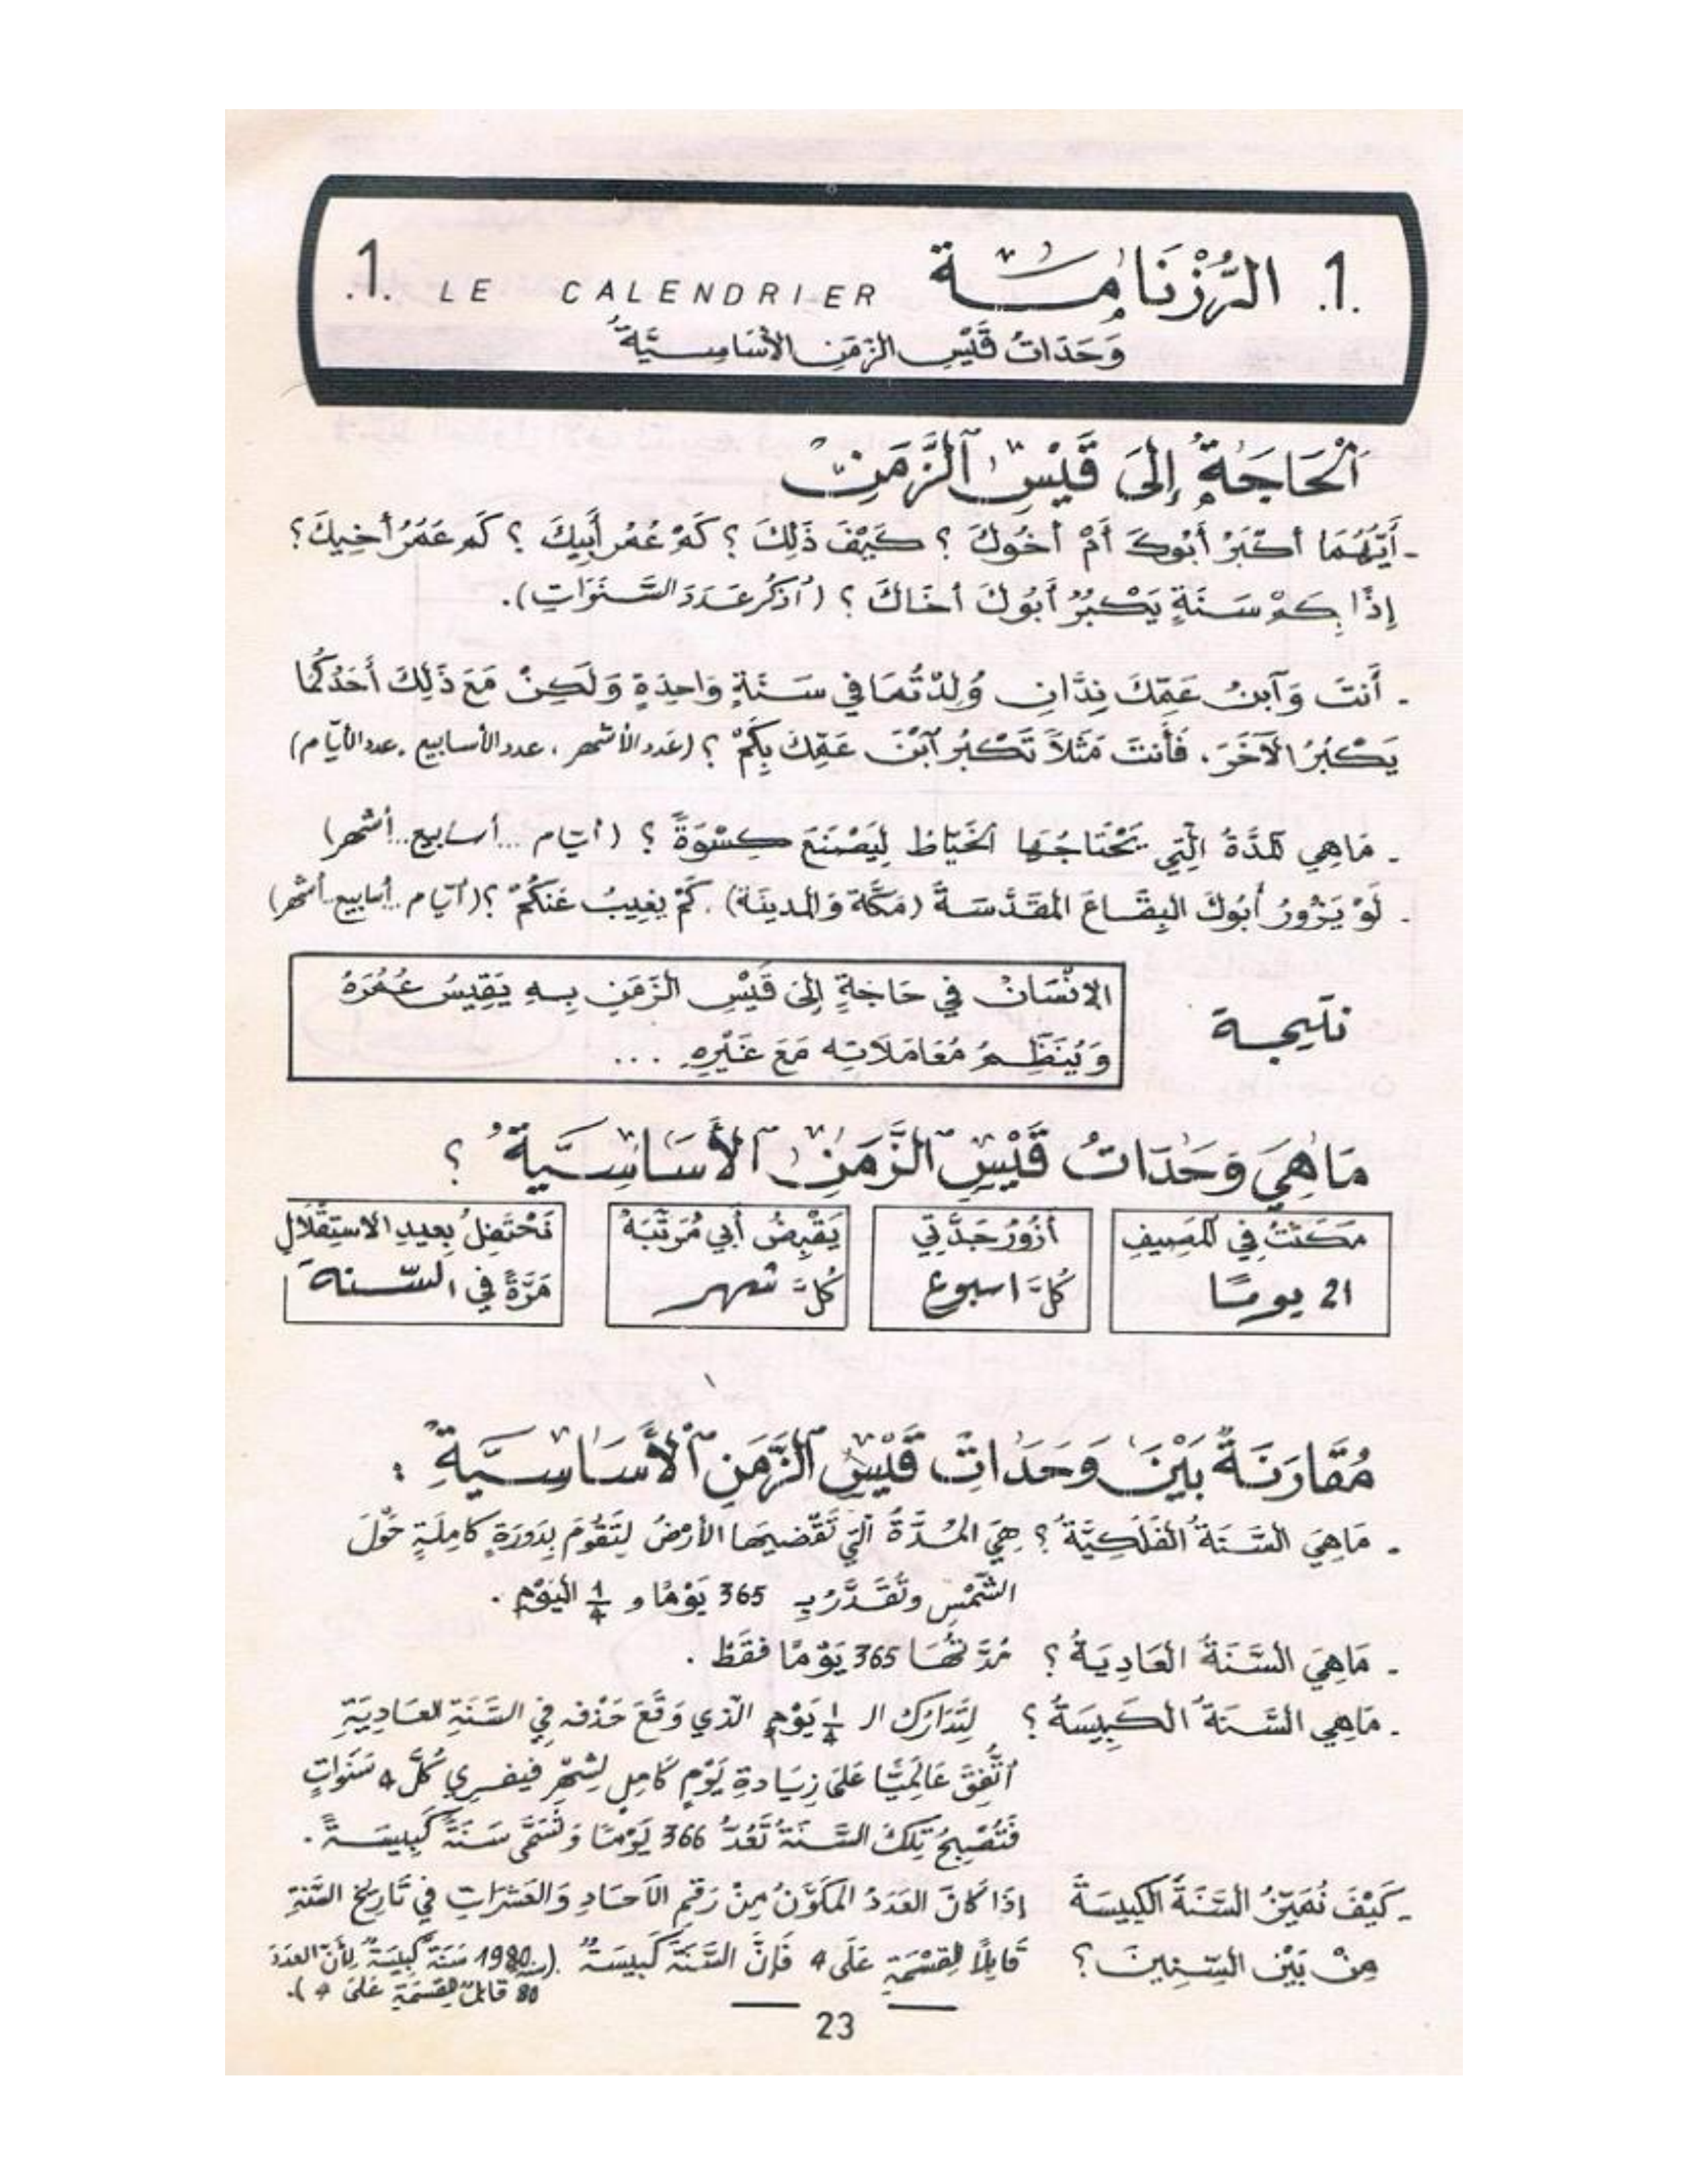 1. الرُّزْنَامَة LE CALENDRIER 1.
وَحَدَاتُ قَيْسِ الزَّمَنِ الأَسَاسِيَّةُ
اَلْحَاجَةُ إِلَى قَيْسِ الزَّمَنِ
- أَيُّهُمَا أَكْبَرُ أَبُوكَ أَمْ أَخُوكَ ؟ كَيْفَ ذَلِكَ ؟ كَمْ عُمْرُ أَبِيكَ ؟ كَمْ عُمُرُ أَخِيكَ ؟
إِذًا بِكَمْ سَنَةٍ يَكْبُرُ أَبُوكَ أَخَاكَ ؟ (اُذْكُرْ عَدَدَ السَّنَوَاتِ).
- أَنْتَ وَابْنُ عَمِّكَ نِدَّانِ وُلِدْتُمَا فِي سَنَةٍ وَاحِدَةٍ وَلَكِنْ مَعَ ذَلِكَ أَحَدُكُمَا
يَكْبُرُ الآخَرَ. فَأَنْتَ مَثَلاً تَكْبُرُ ابْنَ عَمِّكَ بِكَمْ ؟ (عَدَد الأشهر ، عدد الأسابيع ، عدد الأيّام)
- مَاهِي الْمُدَّةُ الَّتِي يَحْتَاجُهَا الْخَيَّاطُ لِيَصْنَعَ كِسْوَةً ؟ (أيّام ... أسابيع .. أشهر)
- لَوْ يَزُورُ أَبُوكَ البِقَاعَ المُقَدَّسَةَ (مَكَّةَ وَالمدِينَة). كَمْ يَغِيبُ عَنْكُمْ ؟ (أيّام .. أسابيع .. أشهر)
نتيجة
الإنْسَانُ فِي حَاجَةٍ إِلَى قَيْسِ الزَّمَنِ بِهِ يَقِيسُ عُمُرَهُ
وَيُنَظِّمُ مُعَامَلاَتِه مَعَ غَيْرِهِ ...
مَاهِيَ وَحَدَاتُ قَيْسِ الزَّمَنِ الأَسَاسِيَّةُ ؟
مَكَثْتُ فِي المَصِيفِ
21 يومًا
أَزُورُ جَدَّتِي
كُلَّ اسبوع
يَقْبِضُ أَبِي مُرَتَّبَهُ
كُلَّ شهر
نَحْتَفِلُ بِعِيدِ الاسْتِقْلَالِ
مَرَّةً فِي السّنة
مُقَارَنَةٌ بَيْنَ وَحَدَاتِ قَيْسِ الزَّمَنِ الأَسَاسِيَّةِ :
- مَاهِيَ السَّنَةُ الفَلَكِيَّةُ ؟ هِيَ المُدَّةُ الَّتِي تَقْضِيهَا الأَرْضُ لِتَقُومَ بِدَوْرَةٍ كَامِلَةٍ حَوْلَ
الشَّمْسِ وتُقَدَّرُ بِـ 365 يَوْمًا و 1/4 الْيَوْمِ .
- مَاهِيَ السَّنَةُ العَادِيَةُ ؟ مُدَّتُهَا 365 يَوْمًا فَقَطْ .
- مَاهِي السَّنَةُ الكَبِيسَةُ ؟ لِتَدَارُكِ الـ 1/4 يَوْمٍ الّذِي وَقَعَ حَذْفُه فِي السَّنَةِ العَادِيَةِ
اُتُّفِقَ عَالَمِيًّا عَلَى زِيَادَةِ يَوْمٍ كَامِلٍ لِشَهْرِ فيفري كُلَّ 4 سَنَوَاتٍ
فَتُصْبِحُ تِلْكَ السَّنَةُ تَعُدُّ 366 يَوْمًا وَتُسَمَّى سَنَةً كَبِيسَةً .
- كَيْفَ نُمَيِّزُ السَّنَةَ الكَبِيسَةَ إِذَا كَانَ العَدَدُ المُكَوَّنُ مِنْ رَقْمِ الآحَادِ وَالعَشَرَاتِ فِي تَارِيخِ السَّنَةِ
مِنْ بَيْنِ السِّنِينَ ؟ قَابِلًا لِلقِسْمَةِ عَلَى 4 فَإِنَّ السَّنَةَ كَبِيسَةٌ (1980 سَنَةٌ كَبِيسَةٌ لِأَنَّ العَدَدَ
80 قَابِلٌ لِلقِسْمَةِ عَلَى 4).
23